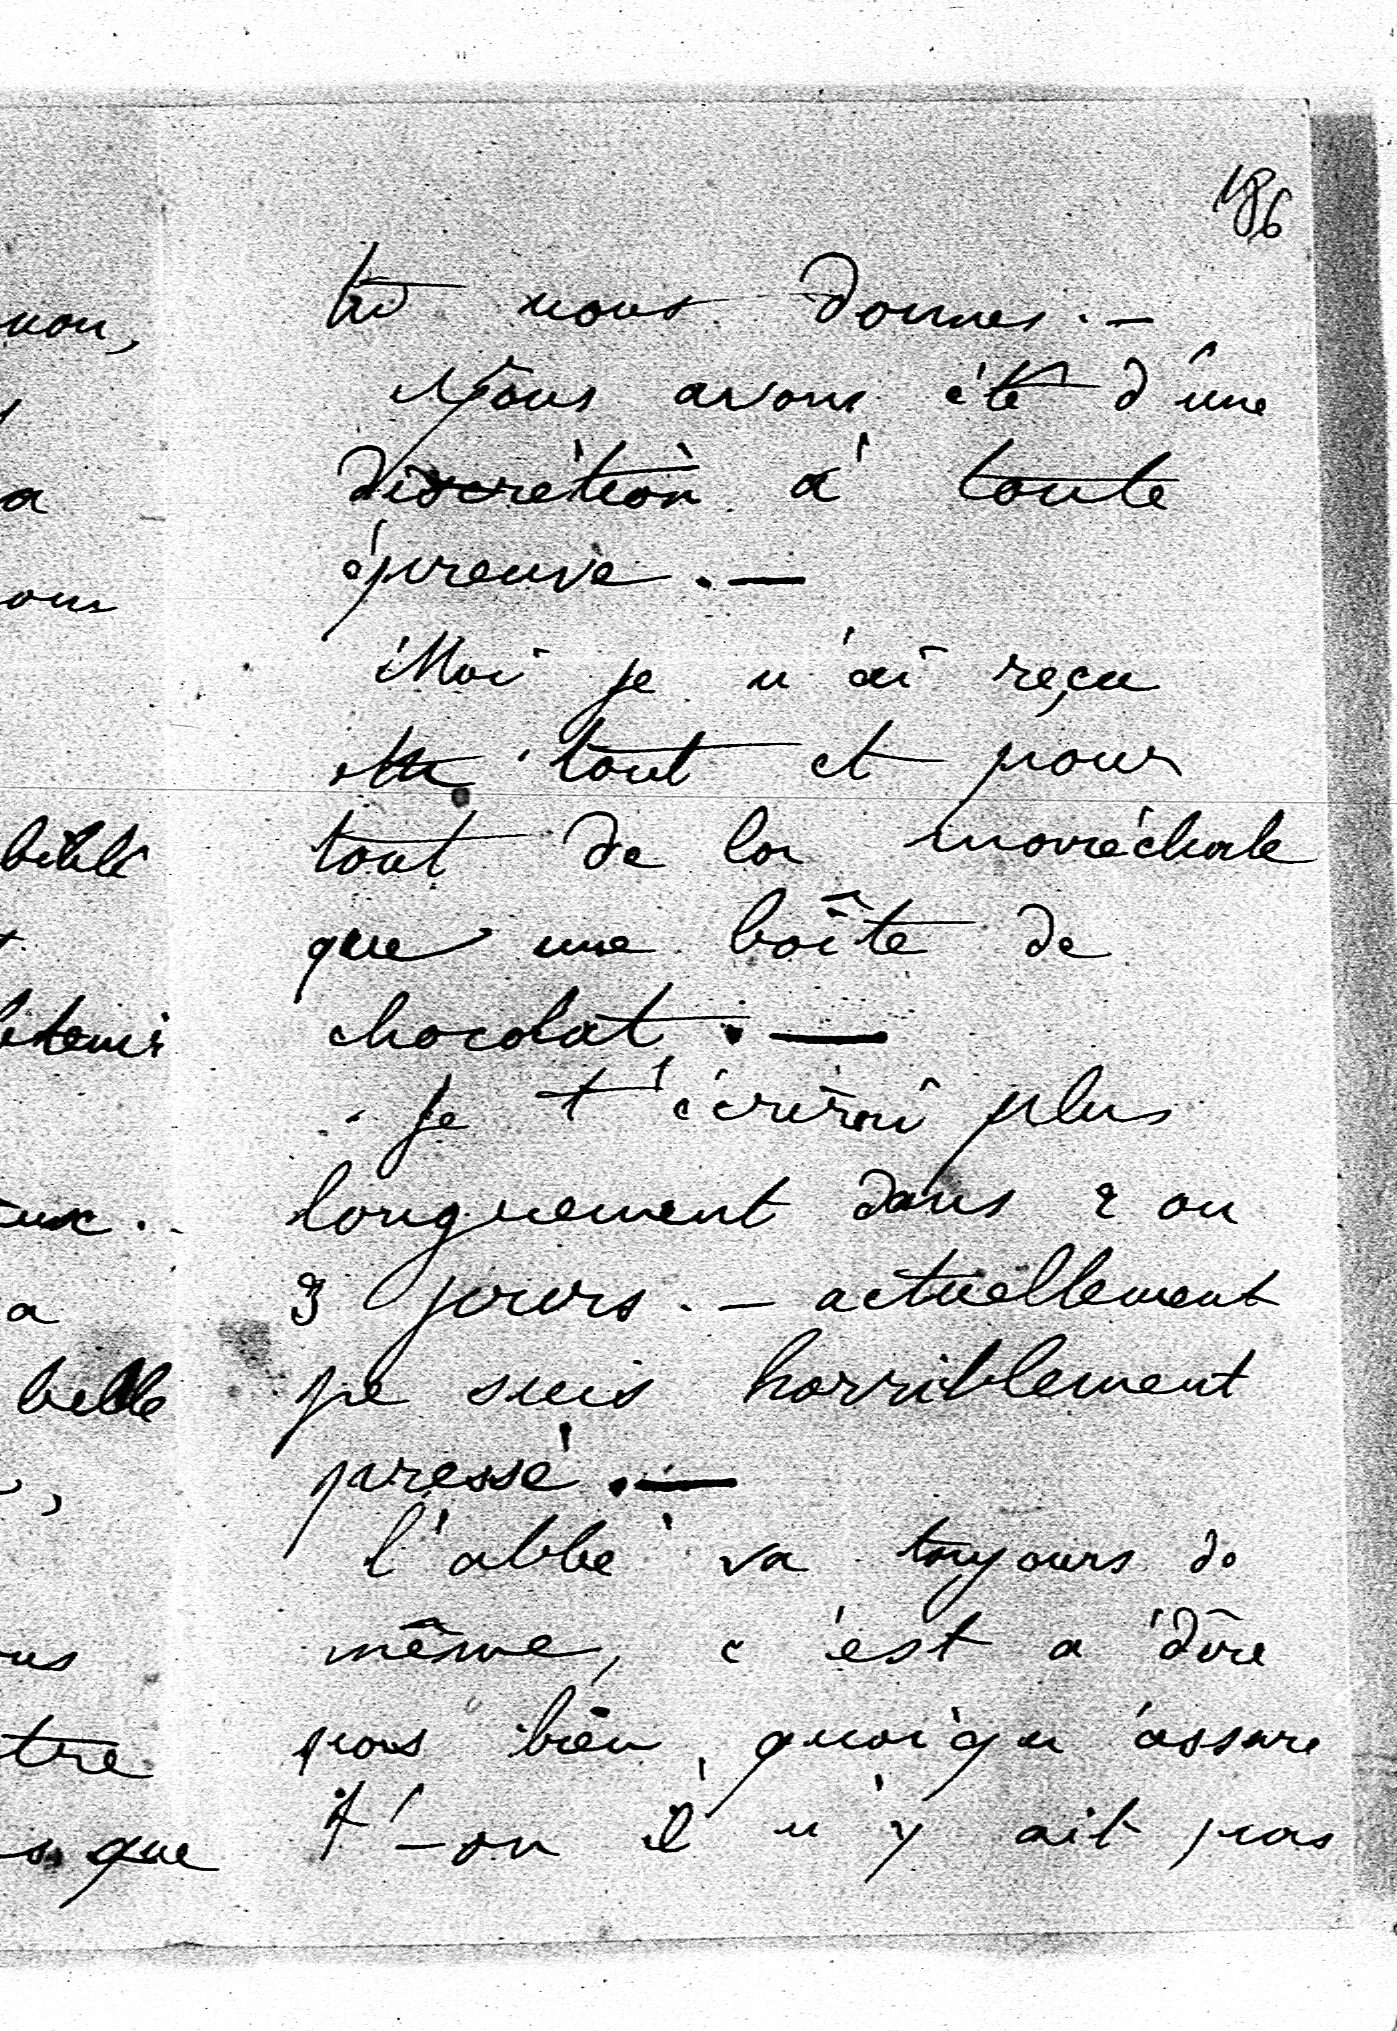 186
tu nous donnes. —
Nous avons été d'une
discrétion à toute
épreuve. —
Moi je n'ai reçu
en tout et pour
tout de la maréchale
que une boîte de
chocolat. —
Je t'écrirai plus
longuement dans 2 ou
3 jours. — actuellement
je suis horriblement
pressé. —
l'abbé va toujours de
même, c'est a'dire
pas bien, quoiqu'assure
t'-on il n'y ait pas
non,
a
ous
tenir
a
belle
us
tre
que